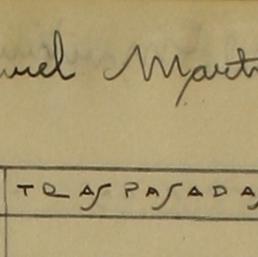 uel Mart
TRASPASADAS